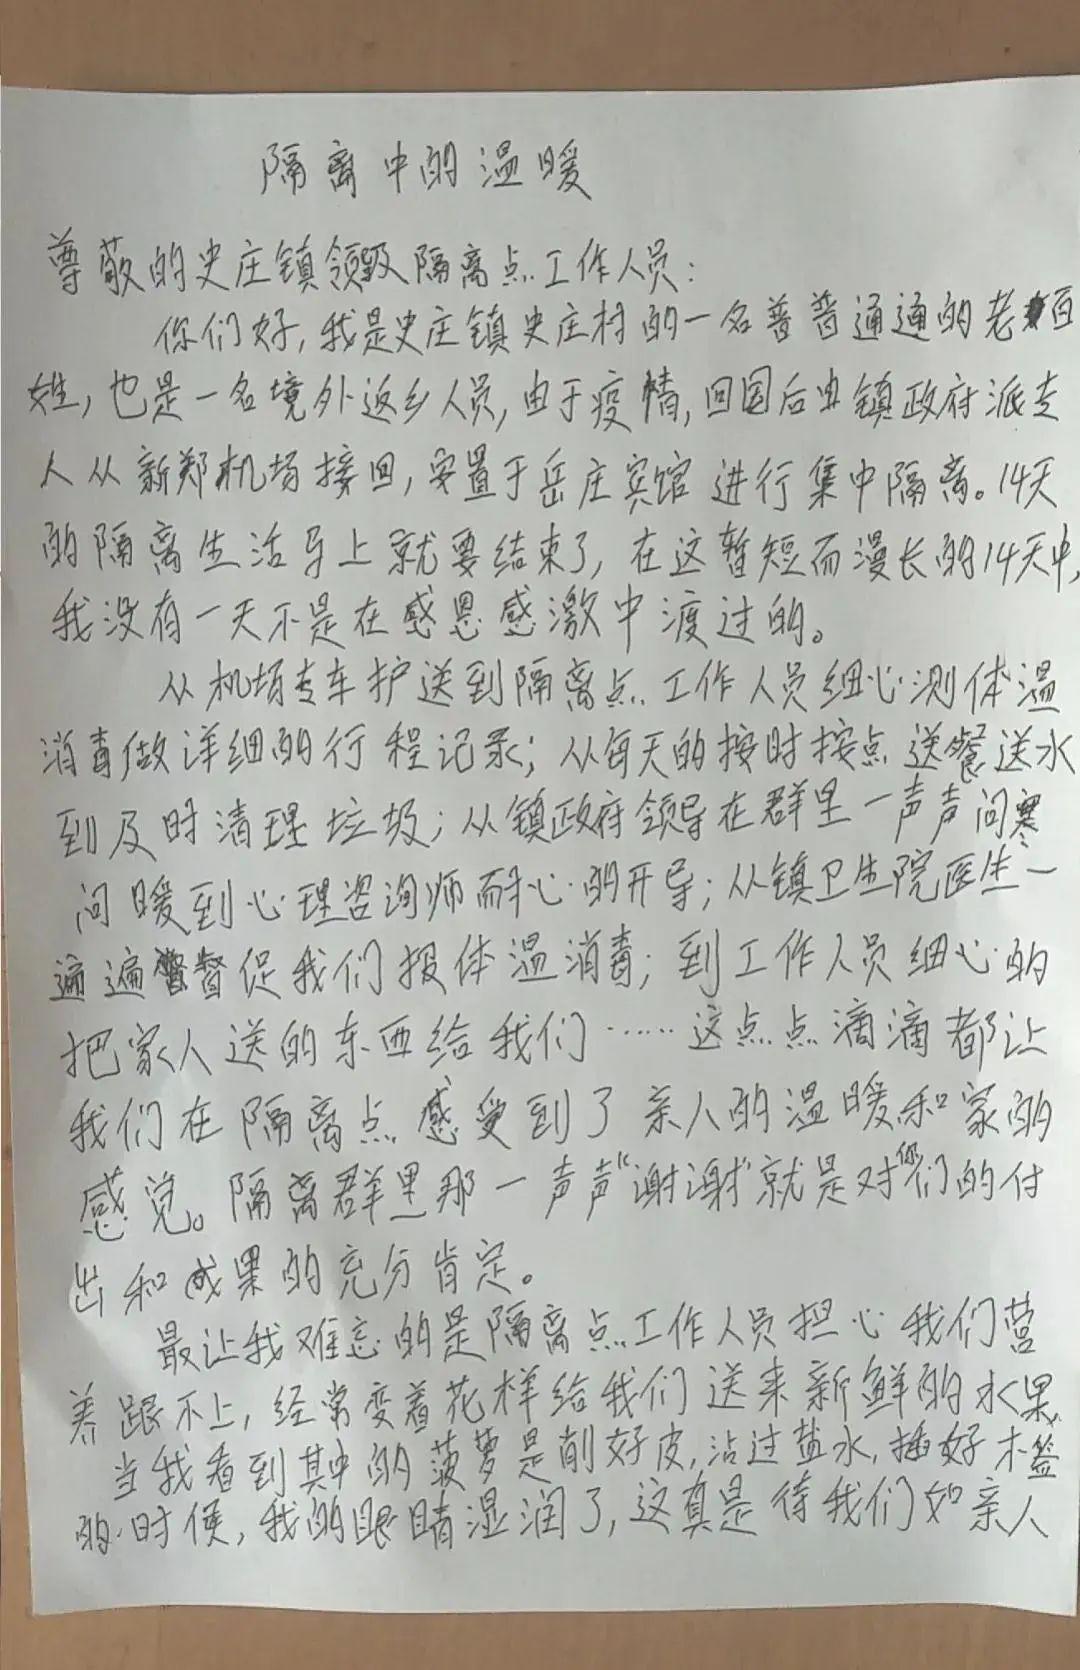 隔离中的温暖
尊敬的史庄镇领导及隔离点工作人员:
你们好,我是史庄镇史庄村的一名普普通通的老百
姓,也是一名境外返乡人员,由于疫情,回国后由镇政府派专
人从新郑机场接回,安置于岳庄宾馆进行集中隔离。14天
的隔离生活马上就要结束了,在这暂短而漫长的14天中,
我没有一天不是在感恩感激中渡过的。
从机场专车护送到隔离点工作人员细心测体温
消毒做详细的行程记录;从每天的按时按点送餐送水
到及时清理垃圾;从镇政府领导在群里一声声问寒
问暖到心理咨询师耐心的开导;从镇卫生院医生一
遍遍督促我们报体温消毒;到工作人员细心的
把家人送的东西给我们……这点点滴滴都让
我们在隔离点感受到了亲人的温暖和家的
感觉。隔离群里那一声声“谢谢”就是对你们的付
出和成果的充分肯定。
最让我难忘的是隔离点工作人员担心我们营
养跟不上,经常变着花样给我们送来新鲜的水果,
当我看到其中的菠萝是削好皮,沾过盐水,插好木签
的时候,我的眼睛湿润了,这真是待我们如亲人